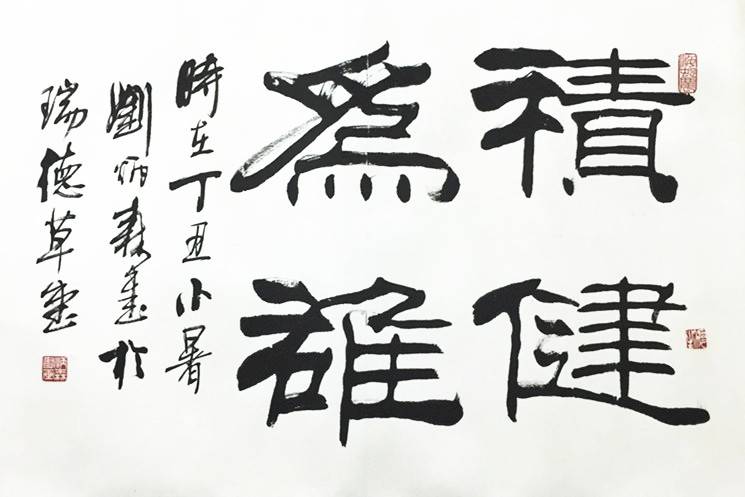 積健
為雄
時在丁丑小暑
劉炳森書於
瑞德草堂